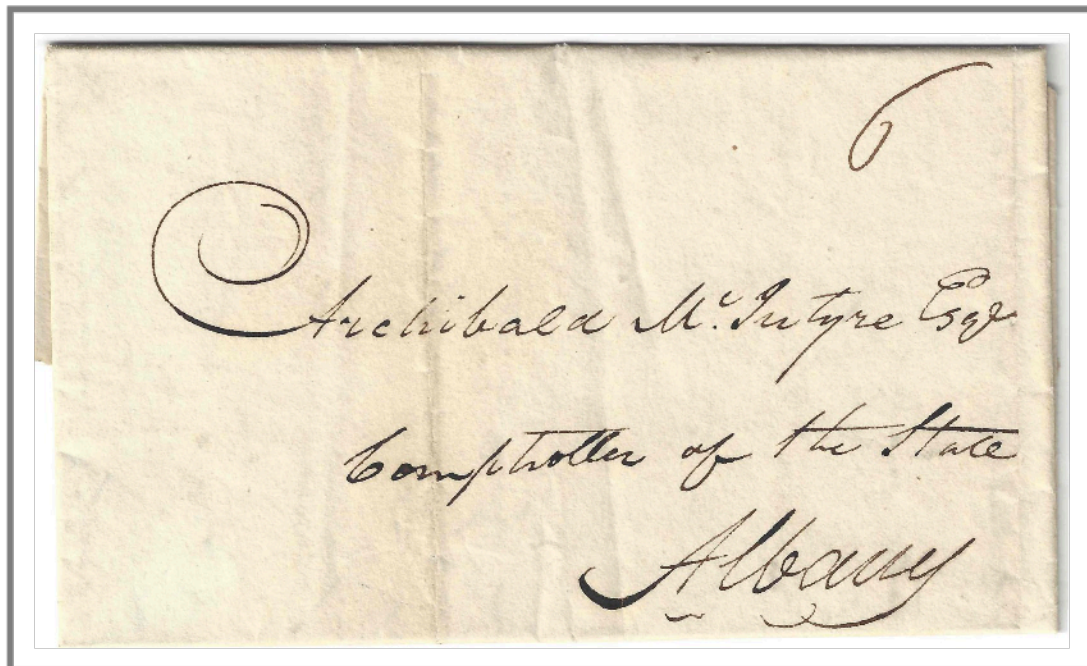 6
Archibald Mc.Intyre Esqr
Comptroller of the State
Albany